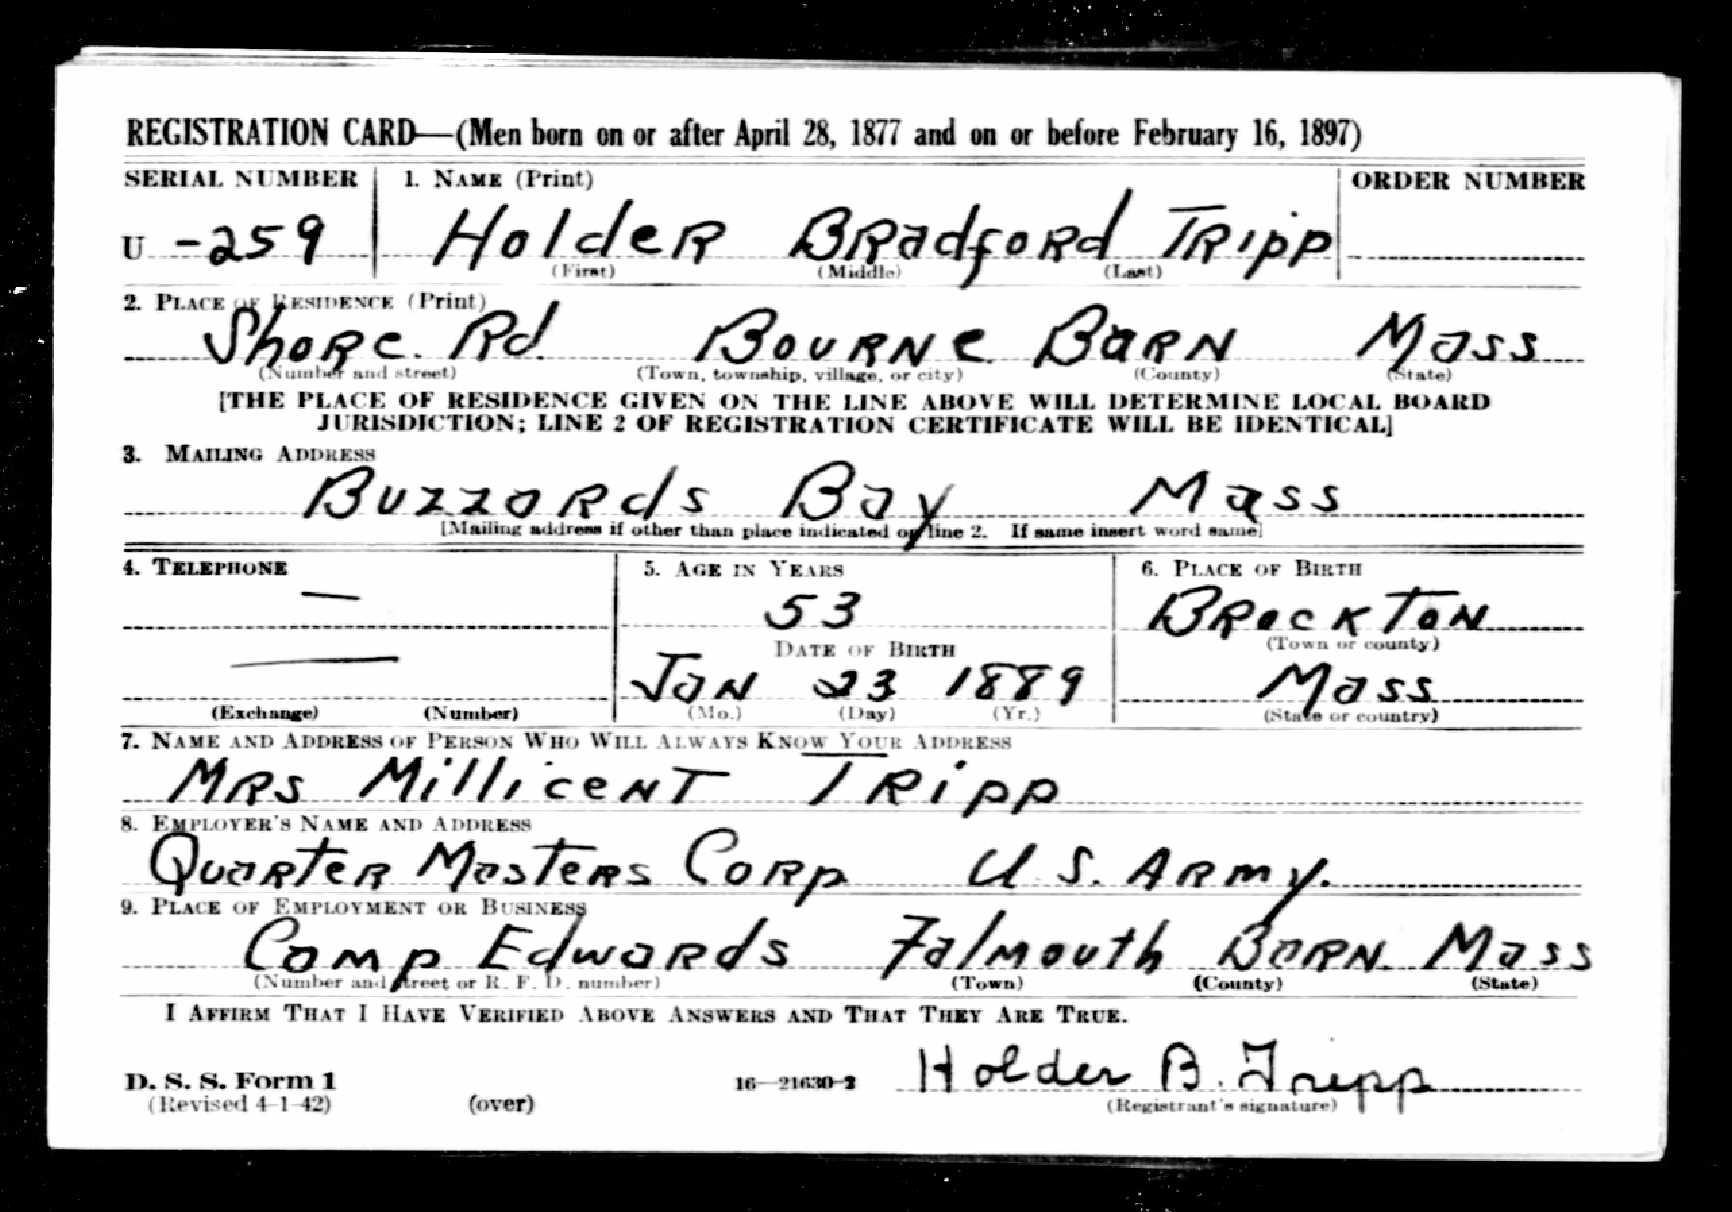 REGISTRATION CARD—(Men born on or after April 28, 1877 and on or before February 16, 1897)
SERIAL NUMBER 1. NAME (Print) ORDER NUMBER
U -259 Holder Bradford Tripp
(First) (Middle) (Last)
2. PLACE OF RESIDENCE (Print)
Shore Rd. Bourne Barn Mass
(Number and street) (Town, township, village, or city) (County) (State)
[THE PLACE OF RESIDENCE GIVEN ON THE LINE ABOVE WILL DETERMINE LOCAL BOARD
JURISDICTION; LINE 2 OF REGISTRATION CERTIFICATE WILL BE IDENTICAL]
3. MAILING ADDRESS
Buzzards Bay Mass
[Mailing address if other than place indicated on line 2. If same insert word same]
4. TELEPHONE 5. AGE IN YEARS 6. PLACE OF BIRTH
— 53 Brockton
DATE OF BIRTH (Town or county)
— Jan 23 1889 Mass
(Exchange) (Number) (Mo.) (Day) (Yr.) (State or country)
7. NAME AND ADDRESS OF PERSON WHO WILL ALWAYS KNOW YOUR ADDRESS
Mrs Millicent Tripp
8. EMPLOYER'S NAME AND ADDRESS
Quarter Masters Corp U.S. Army.
9. PLACE OF EMPLOYMENT OR BUSINESS
Camp Edwards Falmouth Barn. Mass
(Number and street or R. F. D. number) (Town) (County) (State)
I AFFIRM THAT I HAVE VERIFIED ABOVE ANSWERS AND THAT THEY ARE TRUE.
D. S. S. Form 1 16—21630-2 Holder B. Tripp
(Revised 4-1-42) (over) (Registrant's signature)